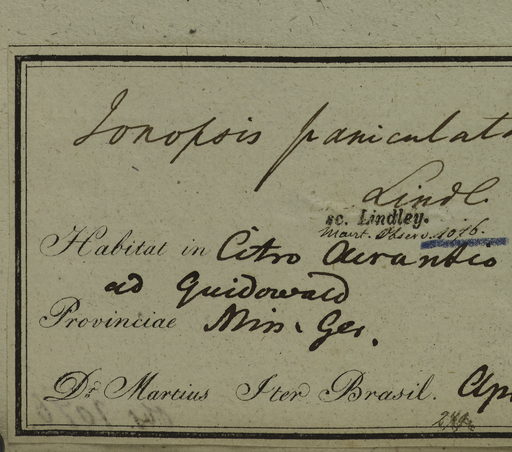 Ionopsis paniculata
Lindl.
sc. Lindley.
Mart. Observ. 1016.
Habitat in Citro Aurantio
ad Guidowald
Provinciae Min. Ger.
Dr. Martius Iter Brasil. Apr